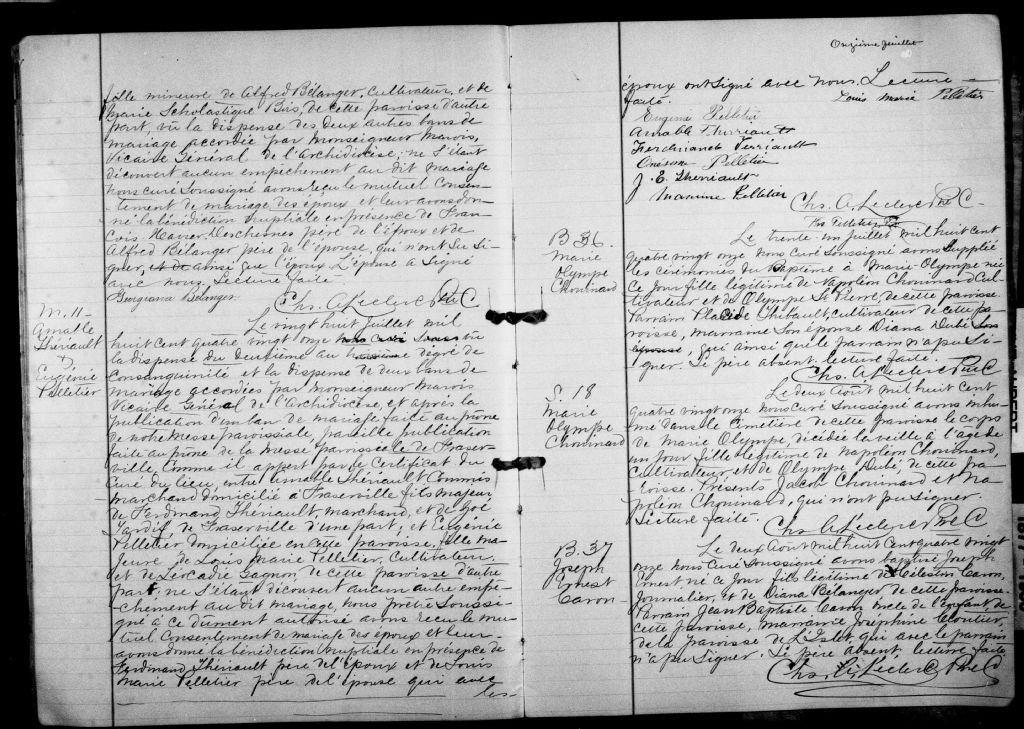 fille mineure de Alfred Bélanger, Cultivateur, et de
Marie Scholastique Bois, de cette paroisse d'autre
part, vu la dispense des deux autres bans de
mariage accordée par Monseigneur Marois,
Vicaire Général de l'Archidiocèse; ne s'étant
découvert aucun empêchement au dit mariage
nous curé soussigné avons reçu le mutuel Consen-
tement de mariage des époux et leur avons don-
né la bénédiction nuptiale en présence de Fran-
çois Xavier Deschesnes père de l'époux et de
Alfred Bélanger père de l'épouse, qui n'ont su si-
gner, et de ainsi que l'époux L'épouse a signé
avec nous. Lecture faite.
Georgiana Bélanger.
Chs. A. Leclerc Ptre C
M. 11-
Amable
Thériault
&
Eugénie
Pelletier
Le vingt huit juillet mil
huit cent quatre vingt onze vu
la dispense du deuxième au degré de
Consanguinité et la dispense de deux bans de
mariage accordées par Monseigneur Marois
Vicaire Général de l'Archidiocèse, et après la
publication d'un ban de mariage faite au prône
de notre Messe paroissiale, pareille publication
faite au prône de la Messe paroissiale de Fraser-
ville, comme il appert par le Certificat du
Curé du lieu, entre Amable Thériault Commis
marchand domicilié à Fraserville fils majeur
de Ferdinand Thériault, marchand, et de Zoé
Tardif de Fraserville d'une part; et Eugénie
Pelletier domiciliée en cette paroisse, fille ma-
jeure de Louis Marie Pelletier, Cultivateur,
et de Léocadie Gagnon, de cette paroisse d'autre
part; ne s'étant découvert aucun autre empê-
chement au dit mariage, nous prêtre soussi-
gné à ce dûment autorisé avons reçu le mu-
tuel Consentement de mariage des époux et leur
avons donné la bénédiction nuptiale en présence de
Ferdinand Thériault père de l'époux et de Louis
Marie Pelletier père de l'épouse qui avec
les-
Onzième feuillet
époux ont signé avec nous. Lecture
faite.
Louis Marie Pelletier
Eugénie Pelletier
Amable Therriault
Ferdinand Terriault
Onésime Pelletier
J. E. Theriault
Pelletier
Chs. A. Leclerc Ptre C-
Pelletier
B 36.
Marie
Olympe
Chouinard
Le trente un juillet mil huit cent
quatre vingt onze nous curé soussigné avons suppléé
les cérémonies du Baptême à Marie Olympe née
ce jour fille légitime de Napoléon Chouinard Cul-
tivateur et de Olympe St Pierre, de cette paroisse.
Parrain Placide Thibault, cultivateur de cette pa-
roisse, marraine son épouse Diana Dubé son
épouse, qui ainsi que le parrain n'a pu si-
gner. Le père absent, lecture faite.
Chs. A Leclerc Ptre C
S. 18
Marie
Olympe
Chouinard
Le deux Août mil huit cent
quatre vingt onze nous curé soussigné avons inhu-
mé dans le Cimetière de cette paroisse le corps
de Marie Olympe, décédée la veille à l'âge de
un jour fille légitime de Napoléon Chouinard,
Cultivateur, et de Olympe Dubé de cette pa-
roisse. Présents Jacob Chouinard et Na-
poléon Chouinard, qui n'ont pu signer.
Lecture faite.
Chs A Leclerc Ptre C
B. 37
Joseph
Ernest
Caron-
Le deux Août mil huit Cent quatre vingt
onze nous curé soussigné avons baptisé Joseph
Ernest né ce jour fils légitime de Célestin Caron
Journalier, et de Diana Bélanger, de cette paroisse.
Parrain Jean Baptiste Caron oncle de l'enfant de
cette paroisse, marraine Joséphine Cloutier,
de la paroisse de L'Islet, qui avec le parrain
n'a pu signer. Le père absent, lecture faite.
Chs. A. Leclerc Ptre C